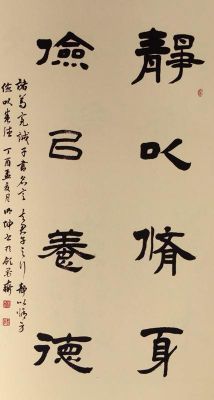 靜以脩身
儉以養德
諸葛亮誡子書名言夫君子之行靜以脩身
儉以養德丁酉孟夏月